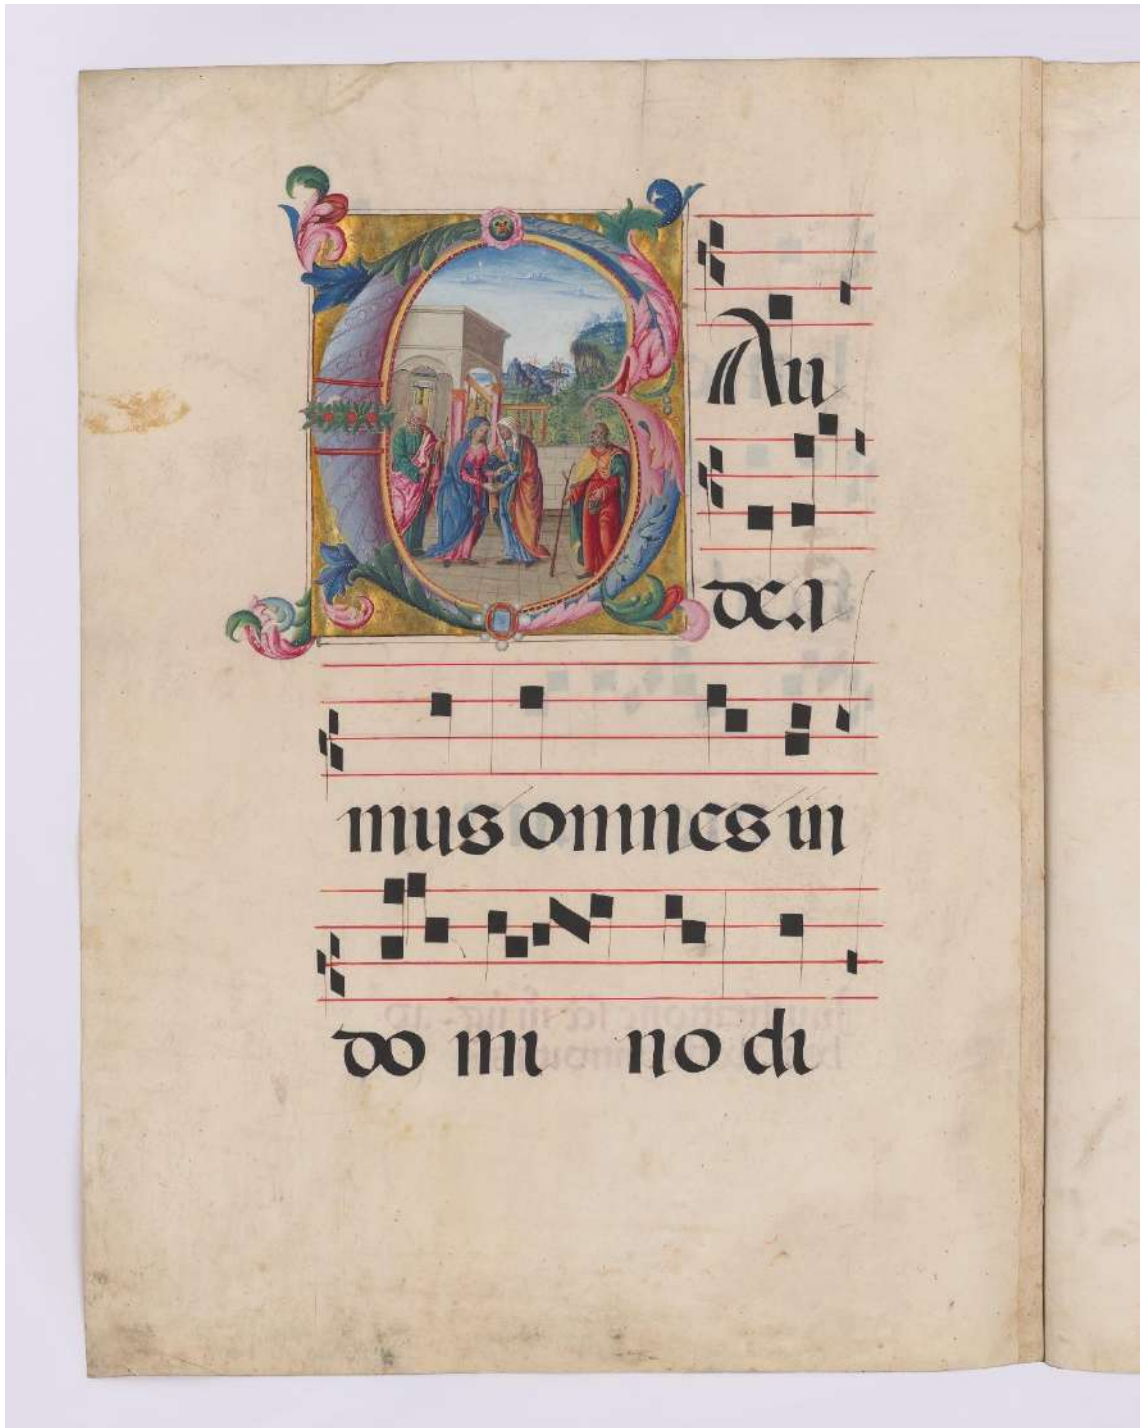 GAu
dea
mus omnes in
do mi no di